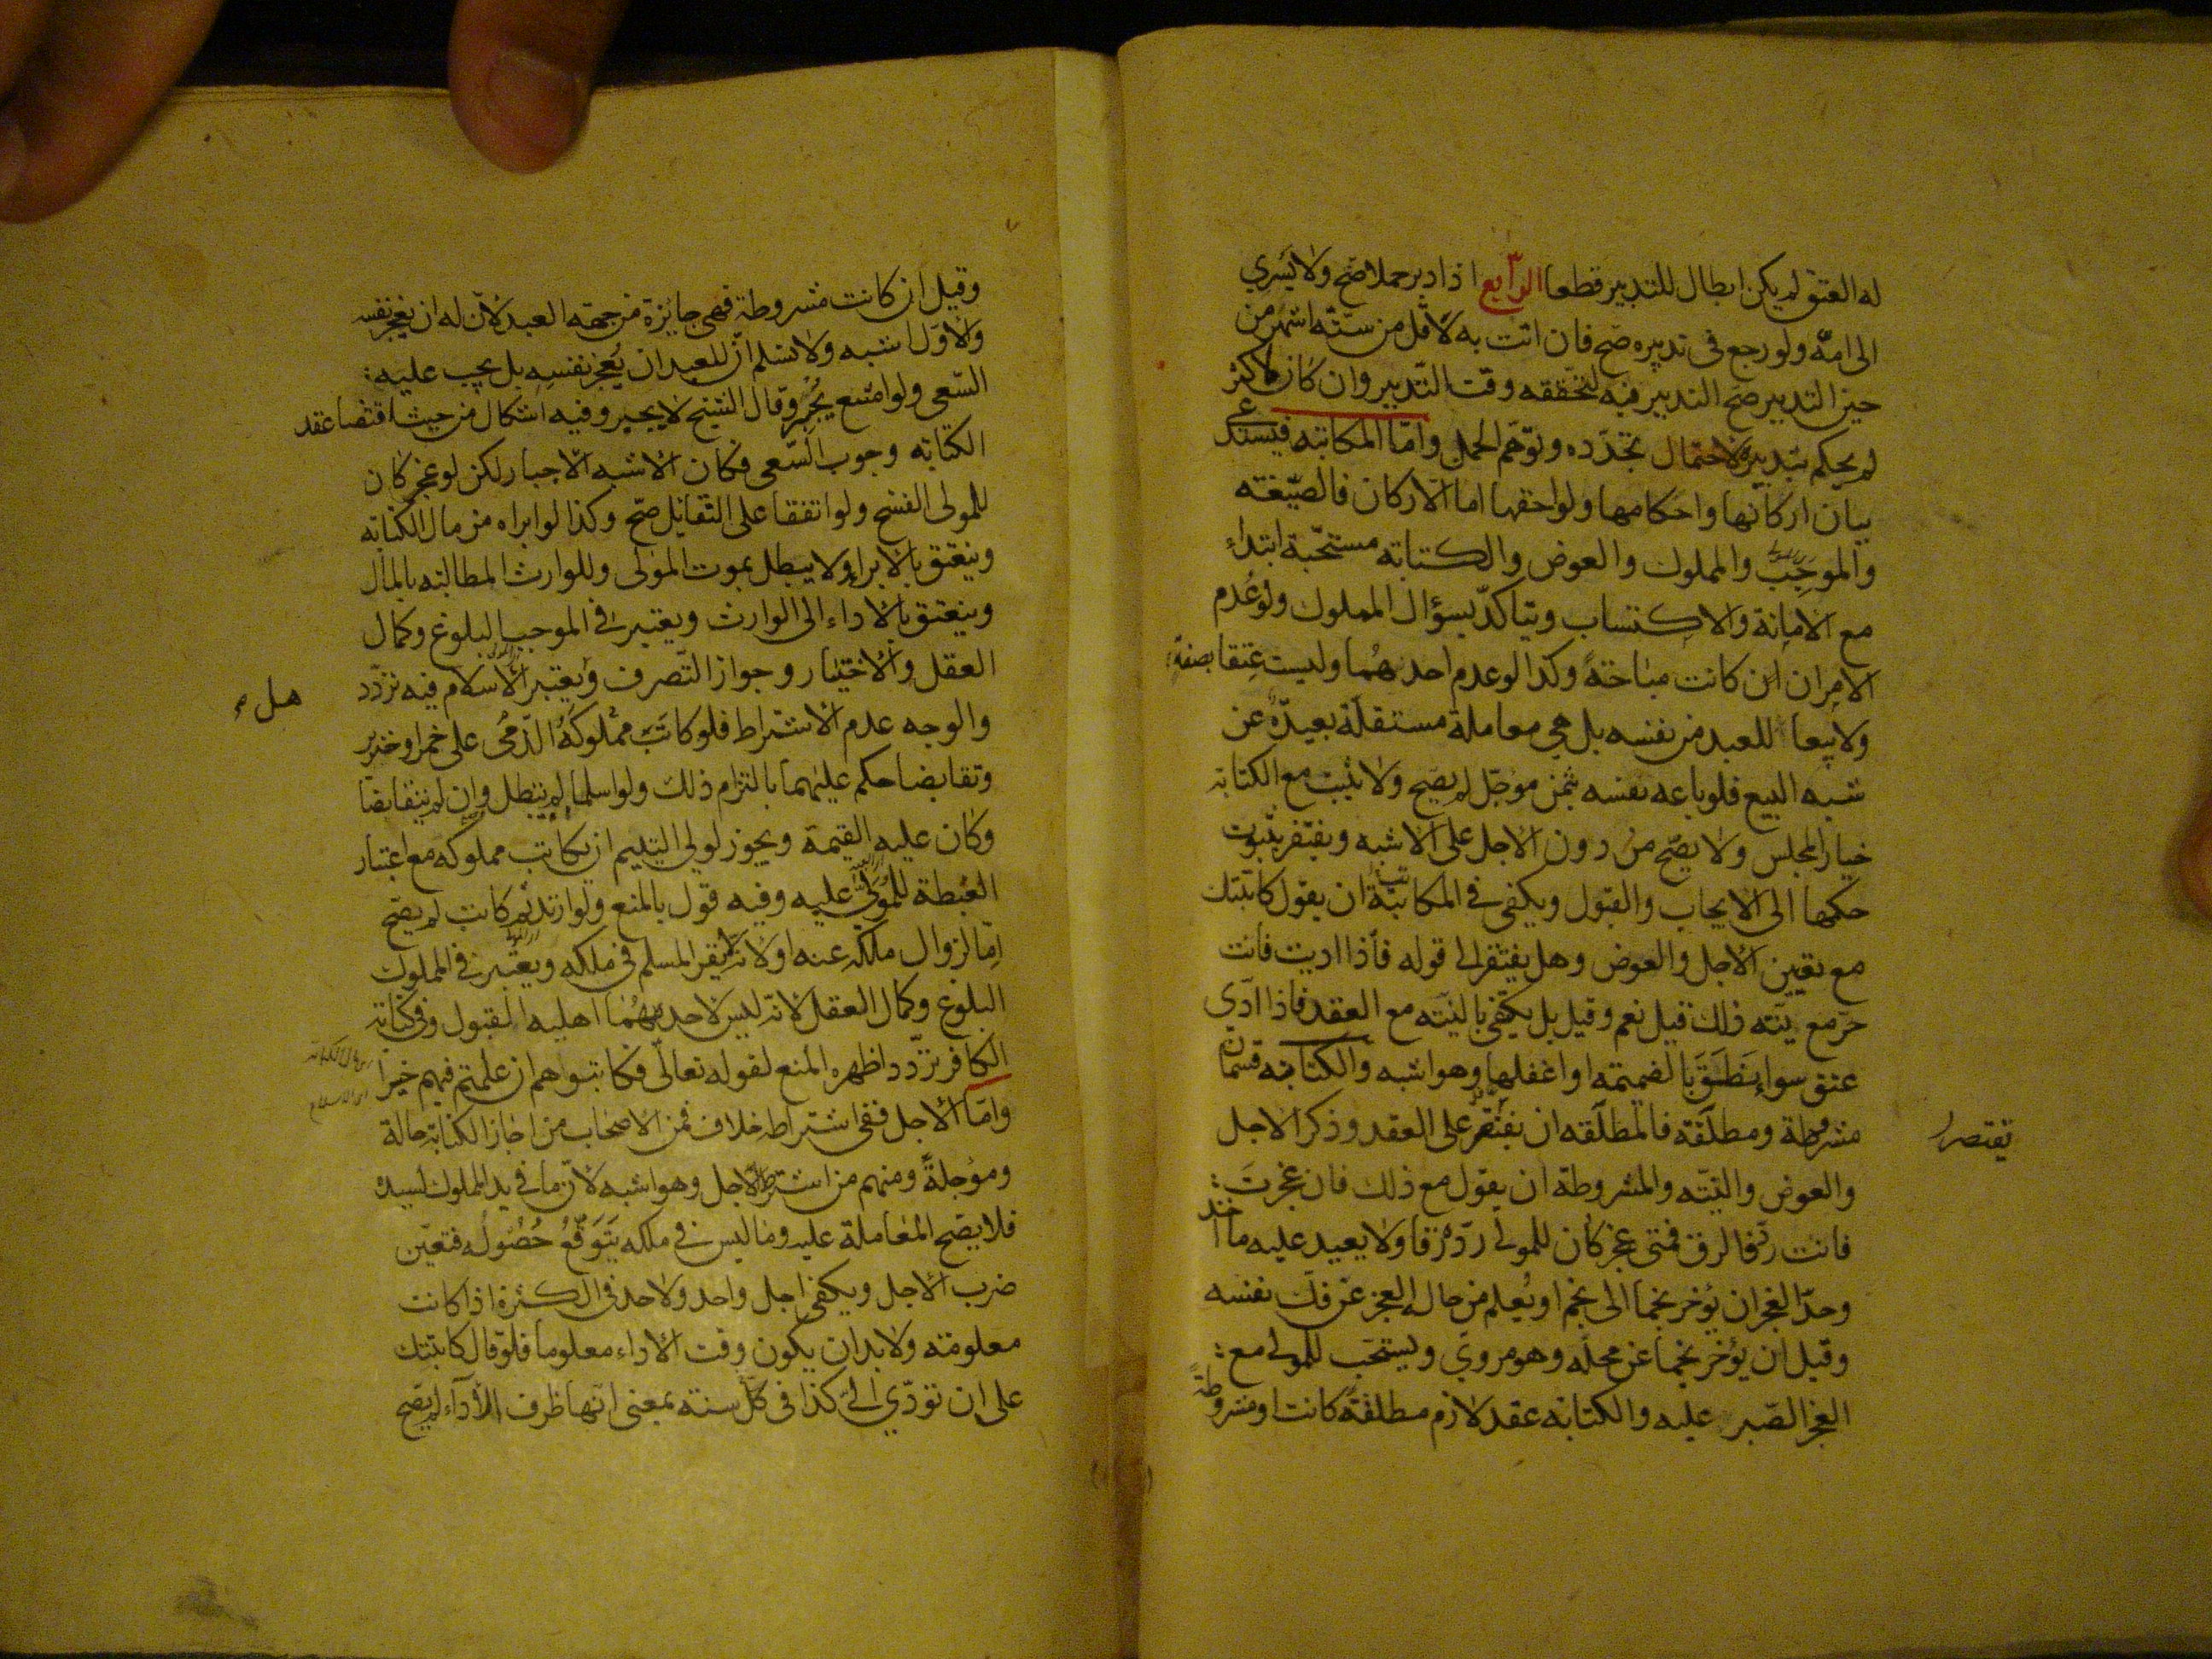 له العتق لم يكن ابطال للتدبير قطعا الرابع اذا دبر حملا صح ولا يسري
الى امه ولو رجع فى تدبيره صح فان اتت به لاقل من ستة اشهر من
حين التدبير صح التدبير فيه لتحققه وقت التدبير وان كان لاكثر
لم يحكم بتدبيره لاحتمال تجدده وتوهم الحمل واما المكاتبه فيستدعى
بيان اركانها واحكامها ولواحقها اما الاركان فالصيغته
والموجب والمملوك والعوض والكتابه مستحبة ابتداء
مع الامانة والاكتساب ويتاكد بسؤال المملوك ولو عدم
الامران كانت مباحة وكذا لو عدم احدهما وليست عتقا بصفة
ولا بيعا للعبد من نفسه بل هي معاملة مستقلة بعيدة عن
شبه البيع فلو باعه نفسه بثمن موجل لم يصح ولا يثبت مع الكتابة
خيار المجلس ولا يصح من دون الاجل على الاشبه ويفتقر بثبوت
حكمها الى الايجاب والقبول ويكفى في المكاتبة ان يقول كاتبتك
مع تعيين الاجل والعوض وهل يفتقر الى قوله فاذا اديت فانت
حر مع نيته ذلك قيل نعم وقيل بل يكفى بالنيته مع العقد فاذا ادى
عتق سواء نطق بالضميمته او اغفلها وهو اشبه والكتابه قسمان
مشروطة ومطلقة فالمطلقه ان يقتصر على العقد وذكر الاجل
والعوض والنيته والمشروطة ان يقول مع ذلك فان عجزت
فانت رد فى الرق فمتى عجز كان للمولى رده رقا ولا يعيد عليه ما اخذ
وحد العجز ان يؤخر نجما الى نجم او يعلم من حاله العجز عن فك نفسه
وقيل ان يؤخر نجما عن محله وهو مروي ويستحب للمولى مع
العجز الصبر عليه والكتابه عقد لازم مطلقة كانت او مشروطة
يقتصر
وقيل ان كانت مشروطة فهى جايزة من جهه العبد لان له ان يعجز نفسه
والاول اشبه ولا نسلم ان للعبد ان يعجز نفسه بل يجب عليه
السعى ولو امتنع يجبر وقال الشيخ لا يجبر وفيه اشكال من حيث اقتضا عقد
الكتابه وجوب السعى فكان الاشبه الاجبار لكن لو عجز كان
للمولى الفسخ ولو اتفقا على التقايل صح وكذا لو ابراه من مال الكتابه
وينعتق بالابراء ولا يبطل بموت المولى وللوارث المطالبته بالمال
وينعتق بالاداء الى الوارث ويعتبر فى الموجب البلوغ وكمال
العقل والاختيار وجواز التصرف وهل يعتبر الاسلام فيه تردد
والوجه عدم الاشتراط فلو كاتب مملوكه الذمى على خمر او خنزير
وتقابضا حكم عليهما بالتزام ذلك ولو اسلما لم يبطل وان لم يتقابضا
وكان عليه القيمة ويجوز لولي اليتيم ان يكاتب مملوكه مع اعتبار
الغبطة للمولى عليه وفيه قول بالمنع ولو ارتد ثم كاتب لم يصح
اما لزوال ملكه عنه او لانه لا يقر المسلم فى ملكه ويعتبر في المملوك
البلوغ وكمال العقل لانه ليس لاحدهما اهليه القبول وفى كتابة
الكافر تردد اظهره المنع لقوله تعالى فكاتبوهم ان علمتم فيهم خيرا
واما الاجل ففى اشتراطه خلاف فمن الاصحاب من اجاز الكتابة حالة
وموجلة ومنهم من اشترط الاجل وهو اشبه لان ما فى يد المملوك لسيده
فلا يصح المعاملة عليه وما ليس في ملكه يتوقع حصوله فتعين
ضرب الاجل ويكفى اجل واحد ولا حد فى الكثرة اذا كانت
معلومته ولا بد ان يكون وقت الاداء معلوما فلو قال كاتبتك
على ان تؤدي الى كذا فى كل سنته بمعنى انها ظرف الاداء لم يصح
هل